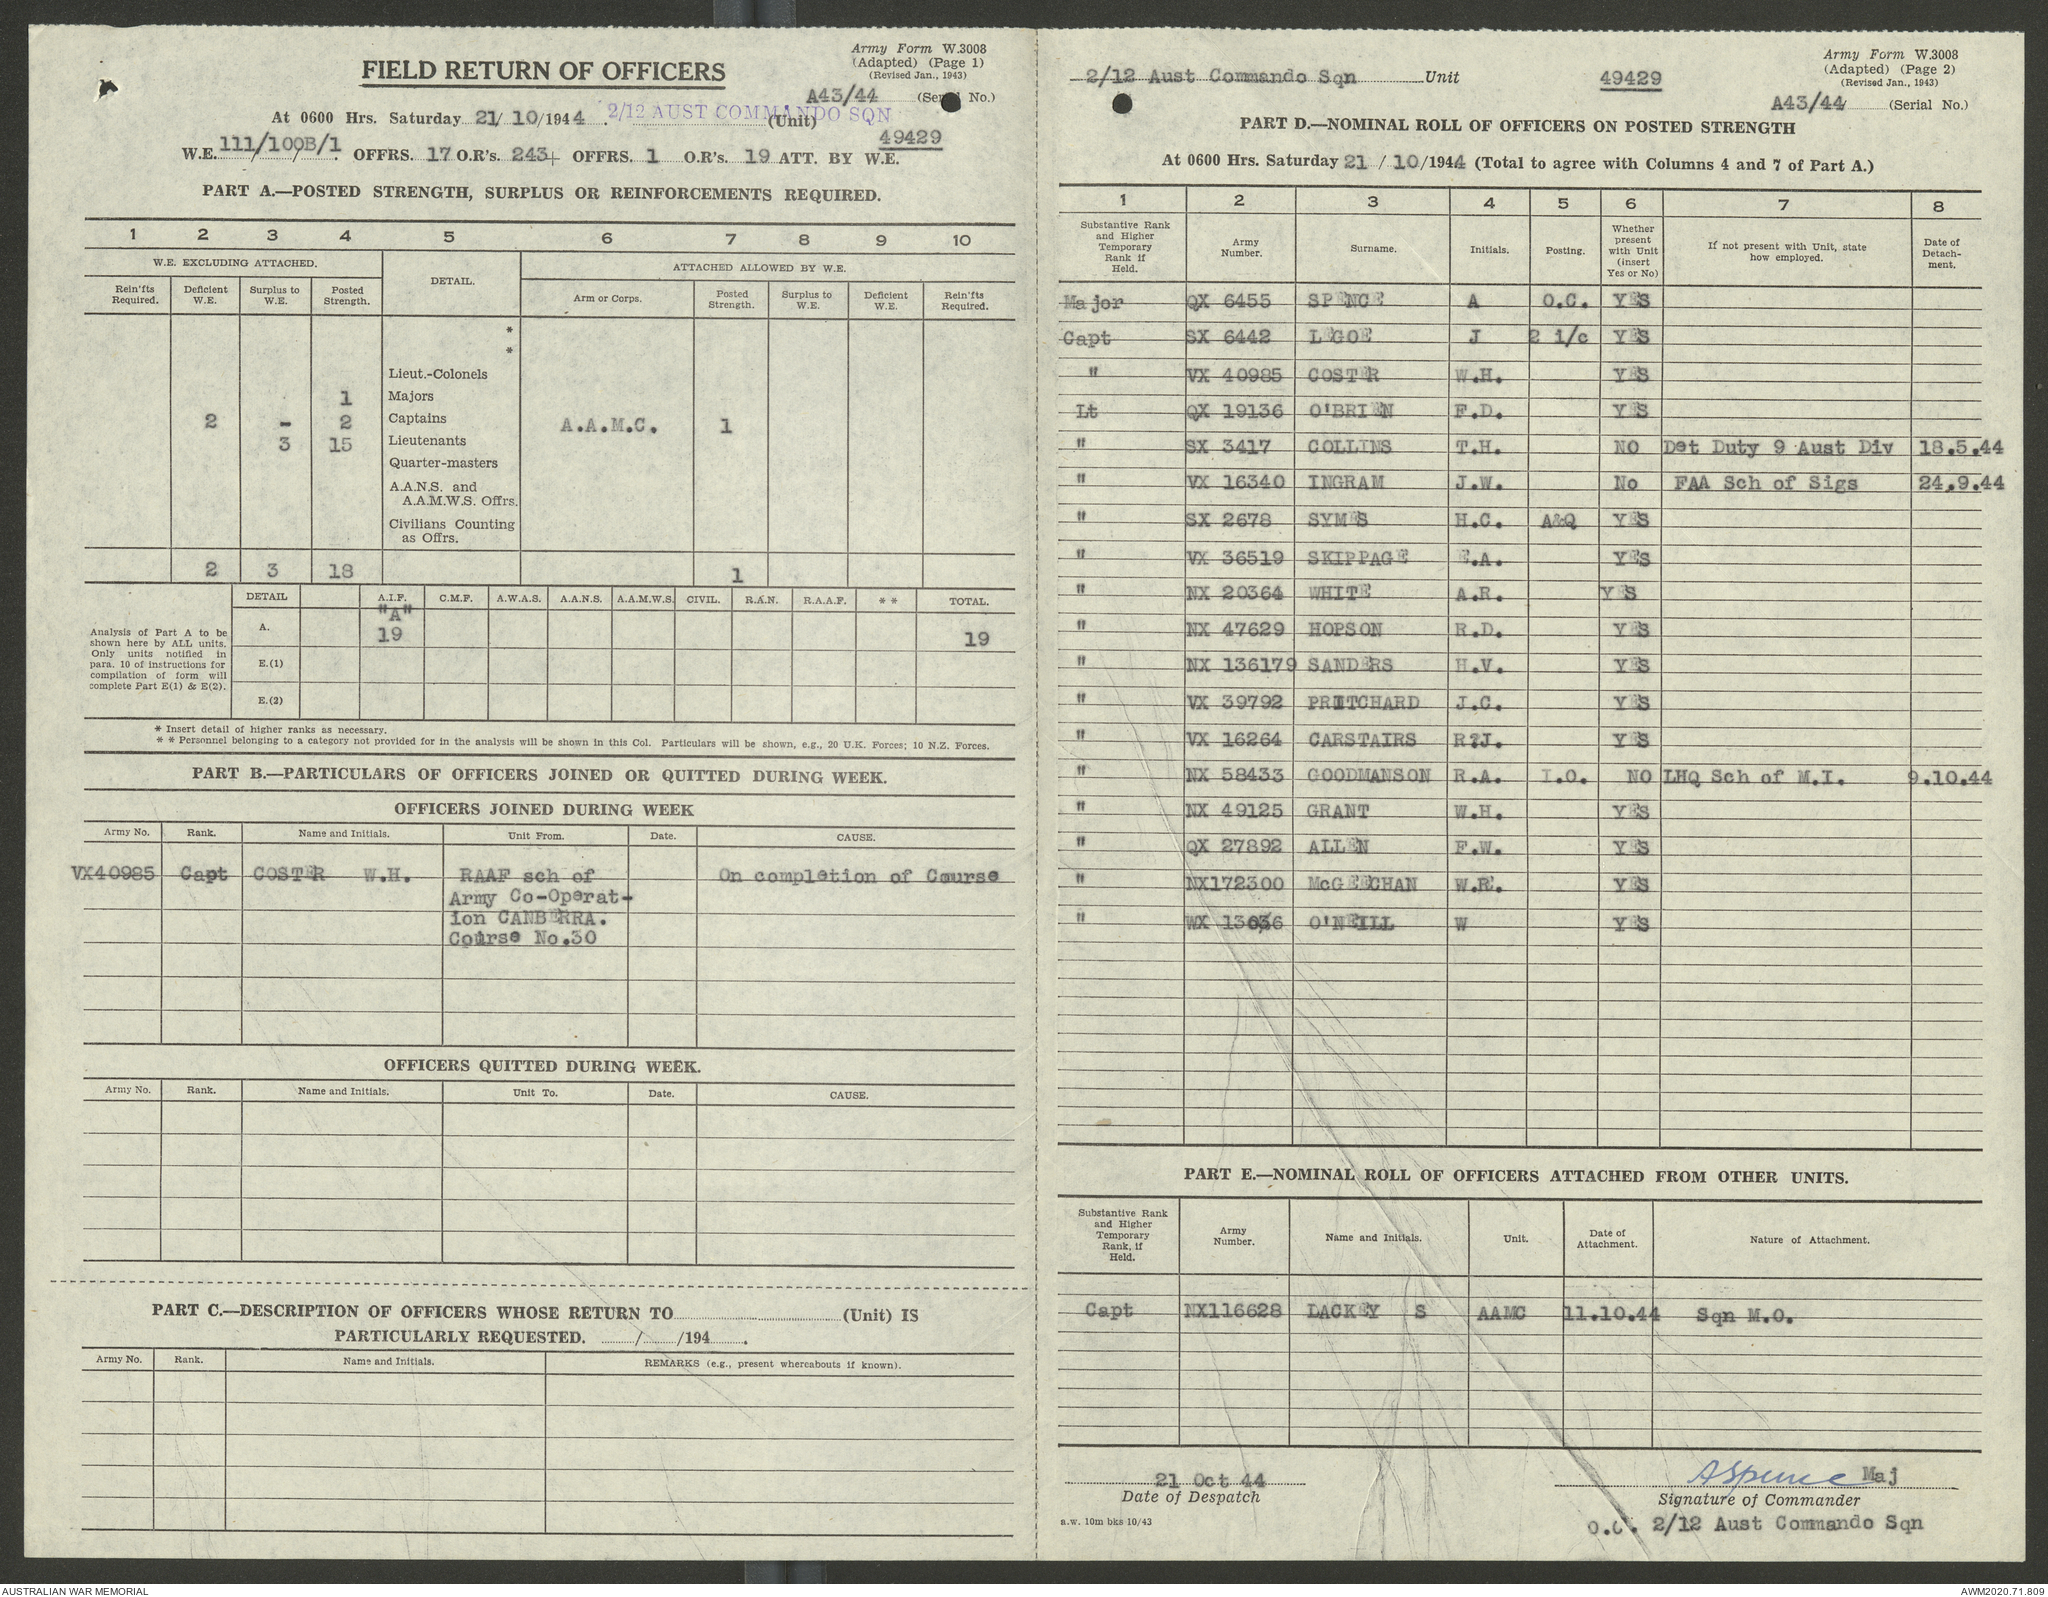 Army Form W.3008
(Adapted) (Page 1)
(Revised Jan., 1943)
FIELD RETURN OF OFFICERS
A43/44 (Serial No.)
At 0600 Hrs. Saturday 21/ 10/1944 . 2/12 AUST COMMANDO SQN (Unit)
49429
W.E. 111/100B/1. OFFRS. 17 O.R's. 243+ OFFRS. 1 O.R's. 19 ATT. BY W.E.
PART A.—POSTED STRENGTH, SURPLUS OR REINFORCEMENTS REQUIRED.
1 2 3 4 5 6 7 8 9 10
W.E. EXCLUDING ATTACHED. DETAIL. ATTACHED ALLOWED BY W.E.
Rein'fts Required. Deficient W.E. Surplus to W.E. Posted Strength. Arm or Corps. Posted Strength. Surplus to W.E. Deficient W.E. Rein'fts Required.
*
*
Lieut.-Colonels
1 Majors
2 - 2 Captains A.A.M.C. 1
3 15 Lieutenants
Quarter-masters
A.A.N.S. and
A.A.M.W.S. Offrs.
Civilians Counting
as Offrs.
2 3 18 1
DETAIL A.I.F. C.M.F. A.W.A.S. A.A.N.S. A.A.M.W.S. CIVIL. R.A.N. R.A.A.F. * * TOTAL.
Analysis of Part A to be
shown here by ALL units.
Only units notified in
para. 10 of instructions for
compilation of form will
complete Part E(1) & E(2).
A. "A"
19 19
E.(1)
E.(2)
* Insert detail of higher ranks as necessary.
* * Personnel belonging to a category not provided for in the analysis will be shown in this Col. Particulars will be shown, e.g., 20 U.K. Forces; 10 N.Z. Forces.
PART B.—PARTICULARS OF OFFICERS JOINED OR QUITTED DURING WEEK.
OFFICERS JOINED DURING WEEK
Army No. Rank. Name and Initials. Unit From. Date. CAUSE.
VX40985 Capt COSTER W.H. RAAF sch of On completion of Course
Army Co-Operat-
ion CANBERRA.
Course No.30
OFFICERS QUITTED DURING WEEK.
Army No. Rank. Name and Initials. Unit To. Date. CAUSE.
PART C.—DESCRIPTION OF OFFICERS WHOSE RETURN TO (Unit) IS
PARTICULARLY REQUESTED. / /194 .
Army No. Rank. Name and Initials. REMARKS (e.g., present whereabouts if known).
Army Form W.3008
(Adapted) (Page 2)
(Revised Jan., 1943)
2/12 Aust Commando Sqn Unit 49429
A43/44 (Serial No.)
PART D.—NOMINAL ROLL OF OFFICERS ON POSTED STRENGTH
At 0600 Hrs. Saturday 21 / 10/1944 (Total to agree with Columns 4 and 7 of Part A.)
1 2 3 4 5 6 7 8
Substantive Rank and Higher Temporary Rank if Held. Army Number. Surname. Initials. Posting. Whether present with Unit (insert Yes or No) If not present with Unit, state how employed. Date of Detach-ment.
Major QX 6455 SPENCE A O.C. YES
Capt SX 6442 LEGOE J 2 i/c YES
" VX 40985 COSTER W.H. YES
Lt QX 19136 O'BRIEN F.D. YES
" SX 3417 COLLINS T.H. NO Det Duty 9 Aust Div 18.5.44
" VX 16340 INGRAM J.W. No FAA Sch of Sigs 24.9.44
" SX 2678 SYMES H.C. A&Q YES
" VX 36519 SKIPPAGE E.A. YES
" NX 20364 WHITE A.R. YES
" NX 47629 HOPSON R.D. YES
" NX 136179 SANDERS H.V. YES
" VX 39792 PRITCHARD J.C. YES
" VX 16264 CARSTAIRS R?J. YES
" NX 58433 GOODMANSON R.A. I.O. NO LHQ Sch of M.I. 9.10.44
" NX 49125 GRANT W.H. YES
" QX 27892 ALLEN F.W. YES
" NX172300 McGEECHAN W.R. YES
" WX O'NEILL W YES
PART E.—NOMINAL ROLL OF OFFICERS ATTACHED FROM OTHER UNITS.
Substantive Rank and Higher Temporary Rank, if Held. Army Number. Name and Initials. Unit. Date of Attachment. Nature of Attachment.
Capt NX116628 LACKEY S AAMC 11.10.44 Sqn M.O.
21 Oct 44 ASpence Maj
Date of Despatch Signature of Commander
a.w. 10m bks 10/43
O.C. 2/12 Aust Commando Sqn
AUSTRALIAN WAR MEMORIAL AWM2020.71.809